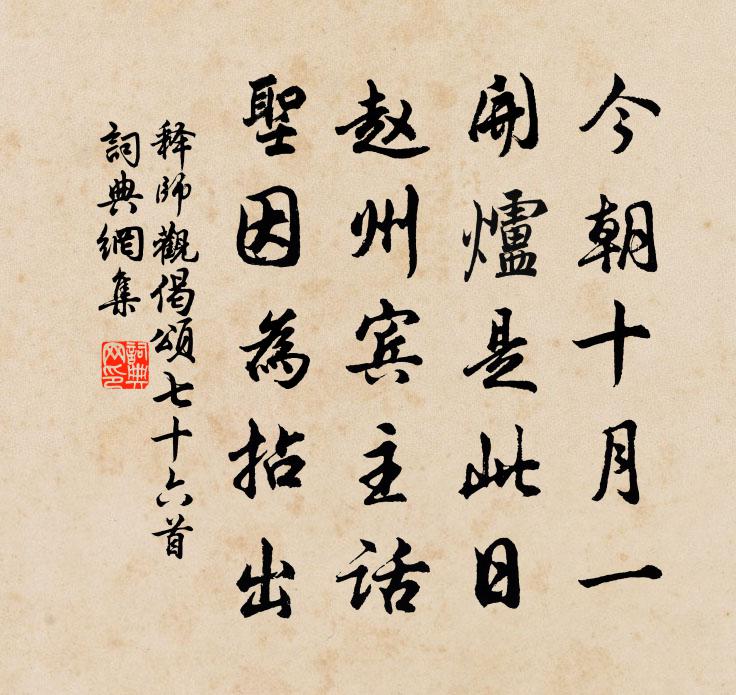 今朝十月一
開爐是此日
赵州宾主話
聖因為拈出
释師觀偈頌七十六首
詞典網集
詞典网印